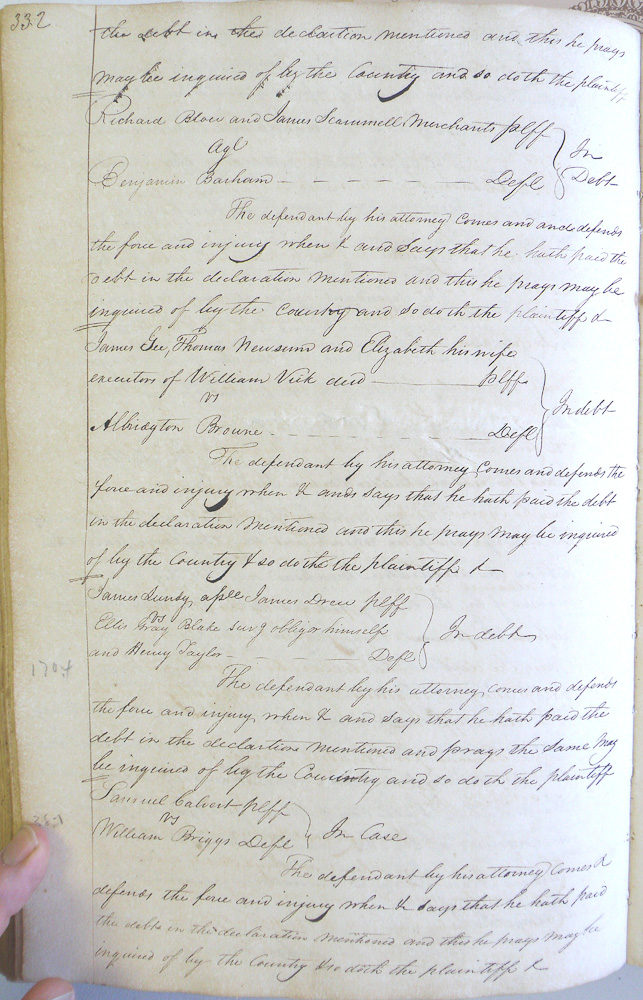 332
the debt in the declartion mentioned and this he prays
may be inquired of by the Country and so doth the plaintiff
Richard Blow and James Scammell Merchants plff
agt
In
Benjamin Barham Deft
Debt
The defendant by his attorney Comes and and defends
the force and injury when & and Says that he hath paid the
debt in the declaration mentioned and this he prays may be
inquired of by the Country and so doth the plaintiff &
James Gee, Thomas Newsum and Elizabeth his wife
executors of William Vick decd plff
vs
In debt
Albridgton Browne Deft
The defendant by his attorney Comes and defends the
force and injury when & and says that he hath paid the debt
in the declaration mentioned and this he prays may be inquired
of by the Country & so doth the plaintiff &
James Lundy James Drew plff
vs
Ellis Gray Blake surg obligor himself
In debt
and Henry Taylor Deft
1704
The defendant by his attorney Comes and defends
the force and injury when & and says that he hath paid the
debt in the declartion mentioned and prays the same may
be inquired of by the Country and so doth the plaintiff
Samuel Calvert plff
vs
In Case
William Briggs Deft
The defendant by his attorney Comes &
defends the force and injury when & says that he hath paid
the debt in the declaration mentioned and this he prays may be
inquired of by the Country & so doth the plaintiff &